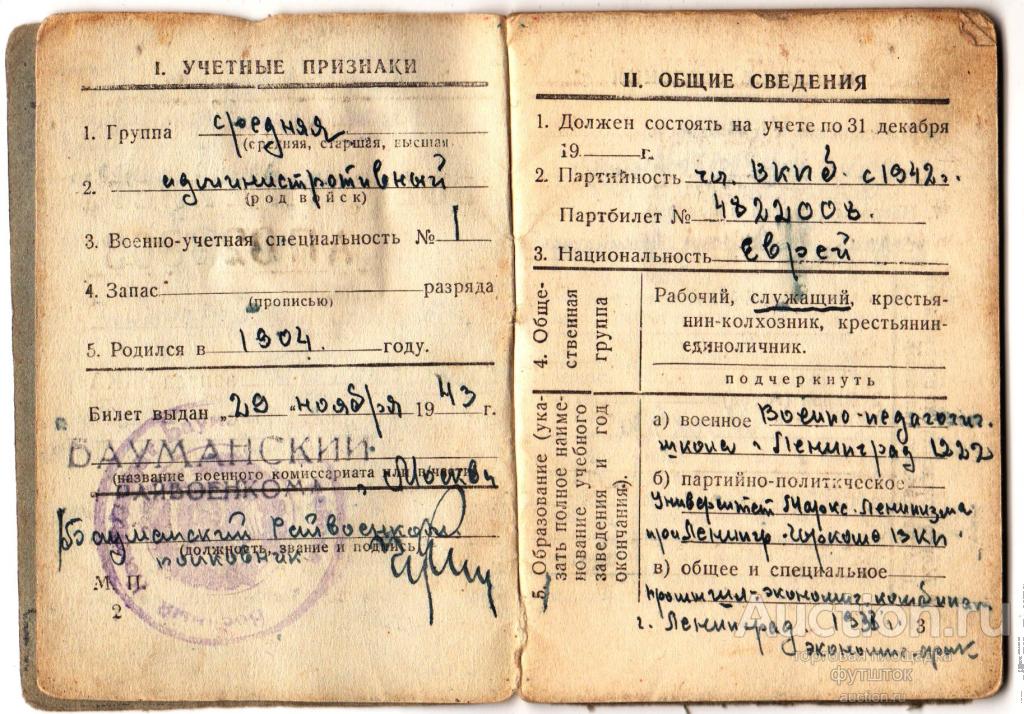 I. УЧЕТНЫЕ ПРИЗНАКИ
1. Группа средняя
(средняя, старшая, высшая
2. административный
(род войск)
3. Военно-учетная специальность № 1
4. Запас разряда
(прописью)
5. Родился в 1904. году.
Билет выдан „29 "ноября 1943 г.
БАУМАНСКИЙ
(название военного комиссариата или в/части)
РАЙВОЕНКОМАТ г. Москвы
Бауманский Райвоенком
(должность, звание и подпись)
полковник
М. П.
2
II. ОБЩИЕ СВЕДЕНИЯ
1. Должен состоять на учете по 31 декабря
19 г.
2. Партийность чл. ВКПб. с 1942 г.
Партбилет № 4822008.
3. Национальность еврей
4. Общественная группа
Рабочий, служащий, крестья-
нин-колхозник, крестьянин-
единоличник.
подчеркнуть
5. Образование (ука-
зать полное наиме-
нование учебного
заведения и год
окончания).
а) военное Военно-педагогич.
школа г. Ленинград 1922
б) партийно-политическое
Университет Маркс. Ленинизма
при Ленингр. Горкоме ВКП
в) общее и специальное
Промышл-экономич. комбинат
г. Ленинград. 1938 г. 3
экономич.
Auction.ru
торговая площадка
футшток
auction.ru